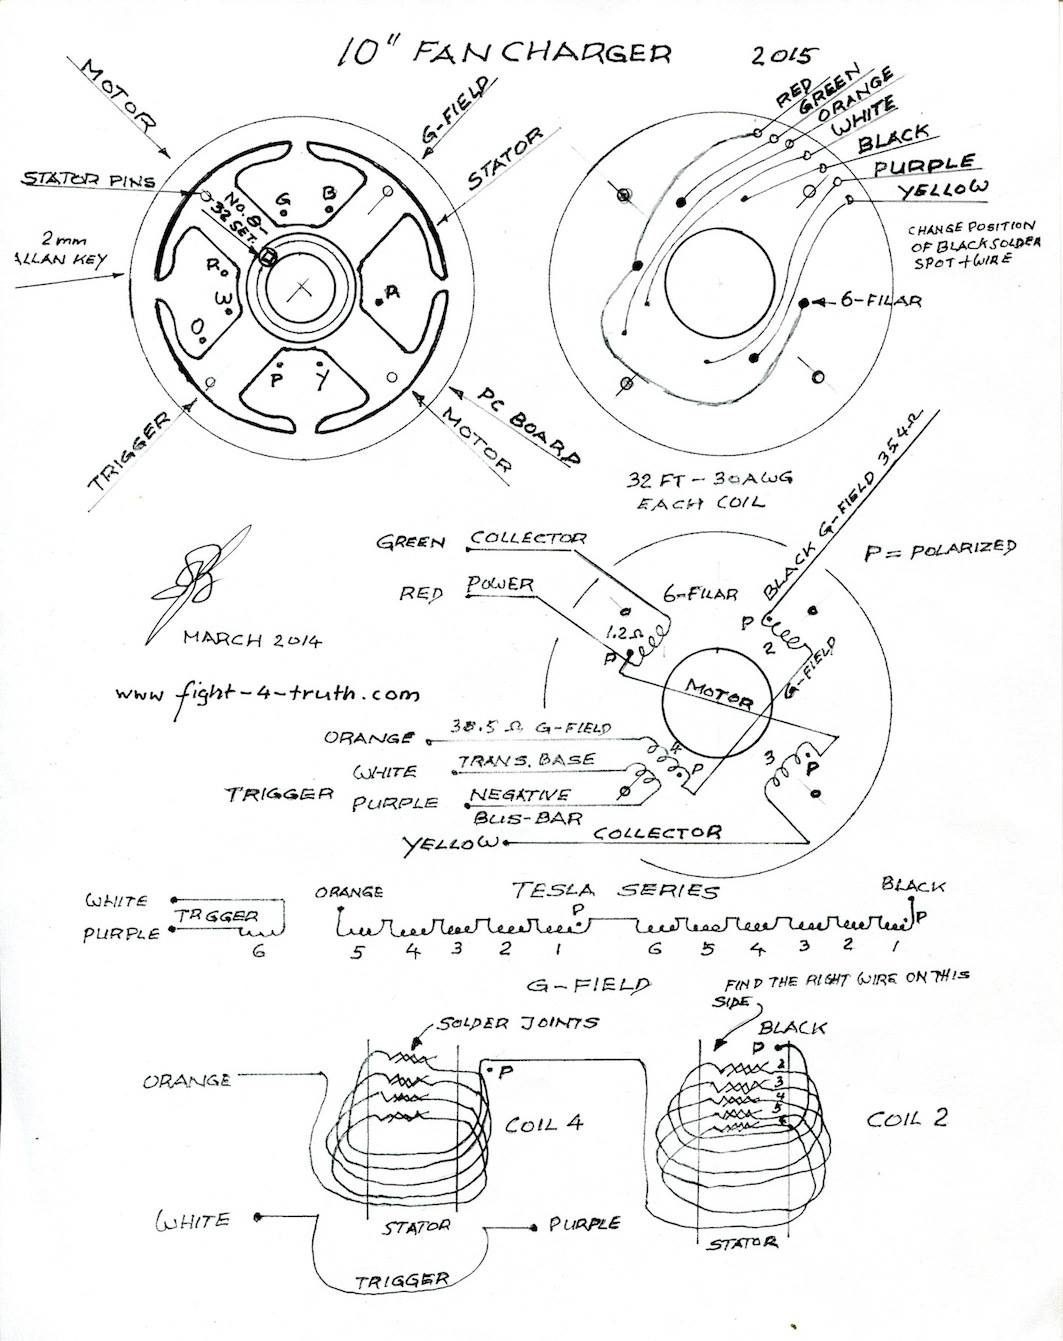 10" FAN CHARGER 2015
MOTOR
G-FIELD
STATOR
STATOR PINS
No. 8-
32 SET.
2mm
ALLAN KEY
G
B
R
W
O
R
P
Y
TRIGGER
MOTOR
PC BOARD
RED
GREEN
ORANGE
WHITE
BLACK
PURPLE
YELLOW
CHANGE POSITION
OF BLACK SOLDER
SPOT + WIRE
6-FILAR
32 FT - 30 AWG
EACH COIL
MARCH 2014
www fight-4-truth.com
GREEN COLLECTOR
RED POWER
6-FILAR
BLACK G-FIELD 35.4Ω
P = POLARIZED
1.2Ω
P
P
2
G-FIELD
MOTOR
ORANGE 38.5 Ω G-FIELD
4
P
3
P
WHITE TRANS. BASE
TRIGGER PURPLE NEGATIVE
BUS-BAR
YELLOW COLLECTOR
WHITE
TRGGER
PURPLE
6
ORANGE
TESLA SERIES
BLACK
P
P
5 4 3 2 1 6 5 4 3 2 1
G-FIELD
FIND THE RIGHT WIRE ON THIS
SIDE
SOLDER JOINTS
BLACK
P
2
3
4
5
6
ORANGE
P
COIL 4
COIL 2
WHITE
STATOR
PURPLE
STATOR
TRIGGER